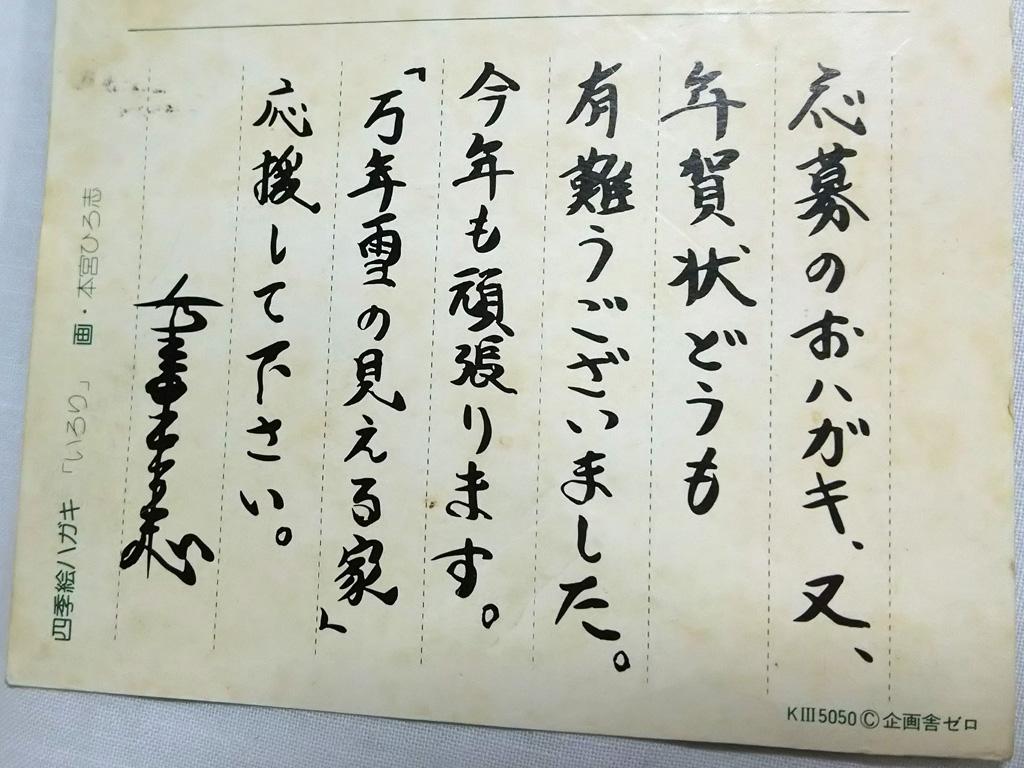 応募のおハガキ、又、
年賀状どうも
有難うございました。
今年も頑張ります。
「万年雪の見える家」
応援して下さい。
四季絵ハガキ「いろり」 画・本宮ひろ志
KⅢ5050©企画舎ゼロ